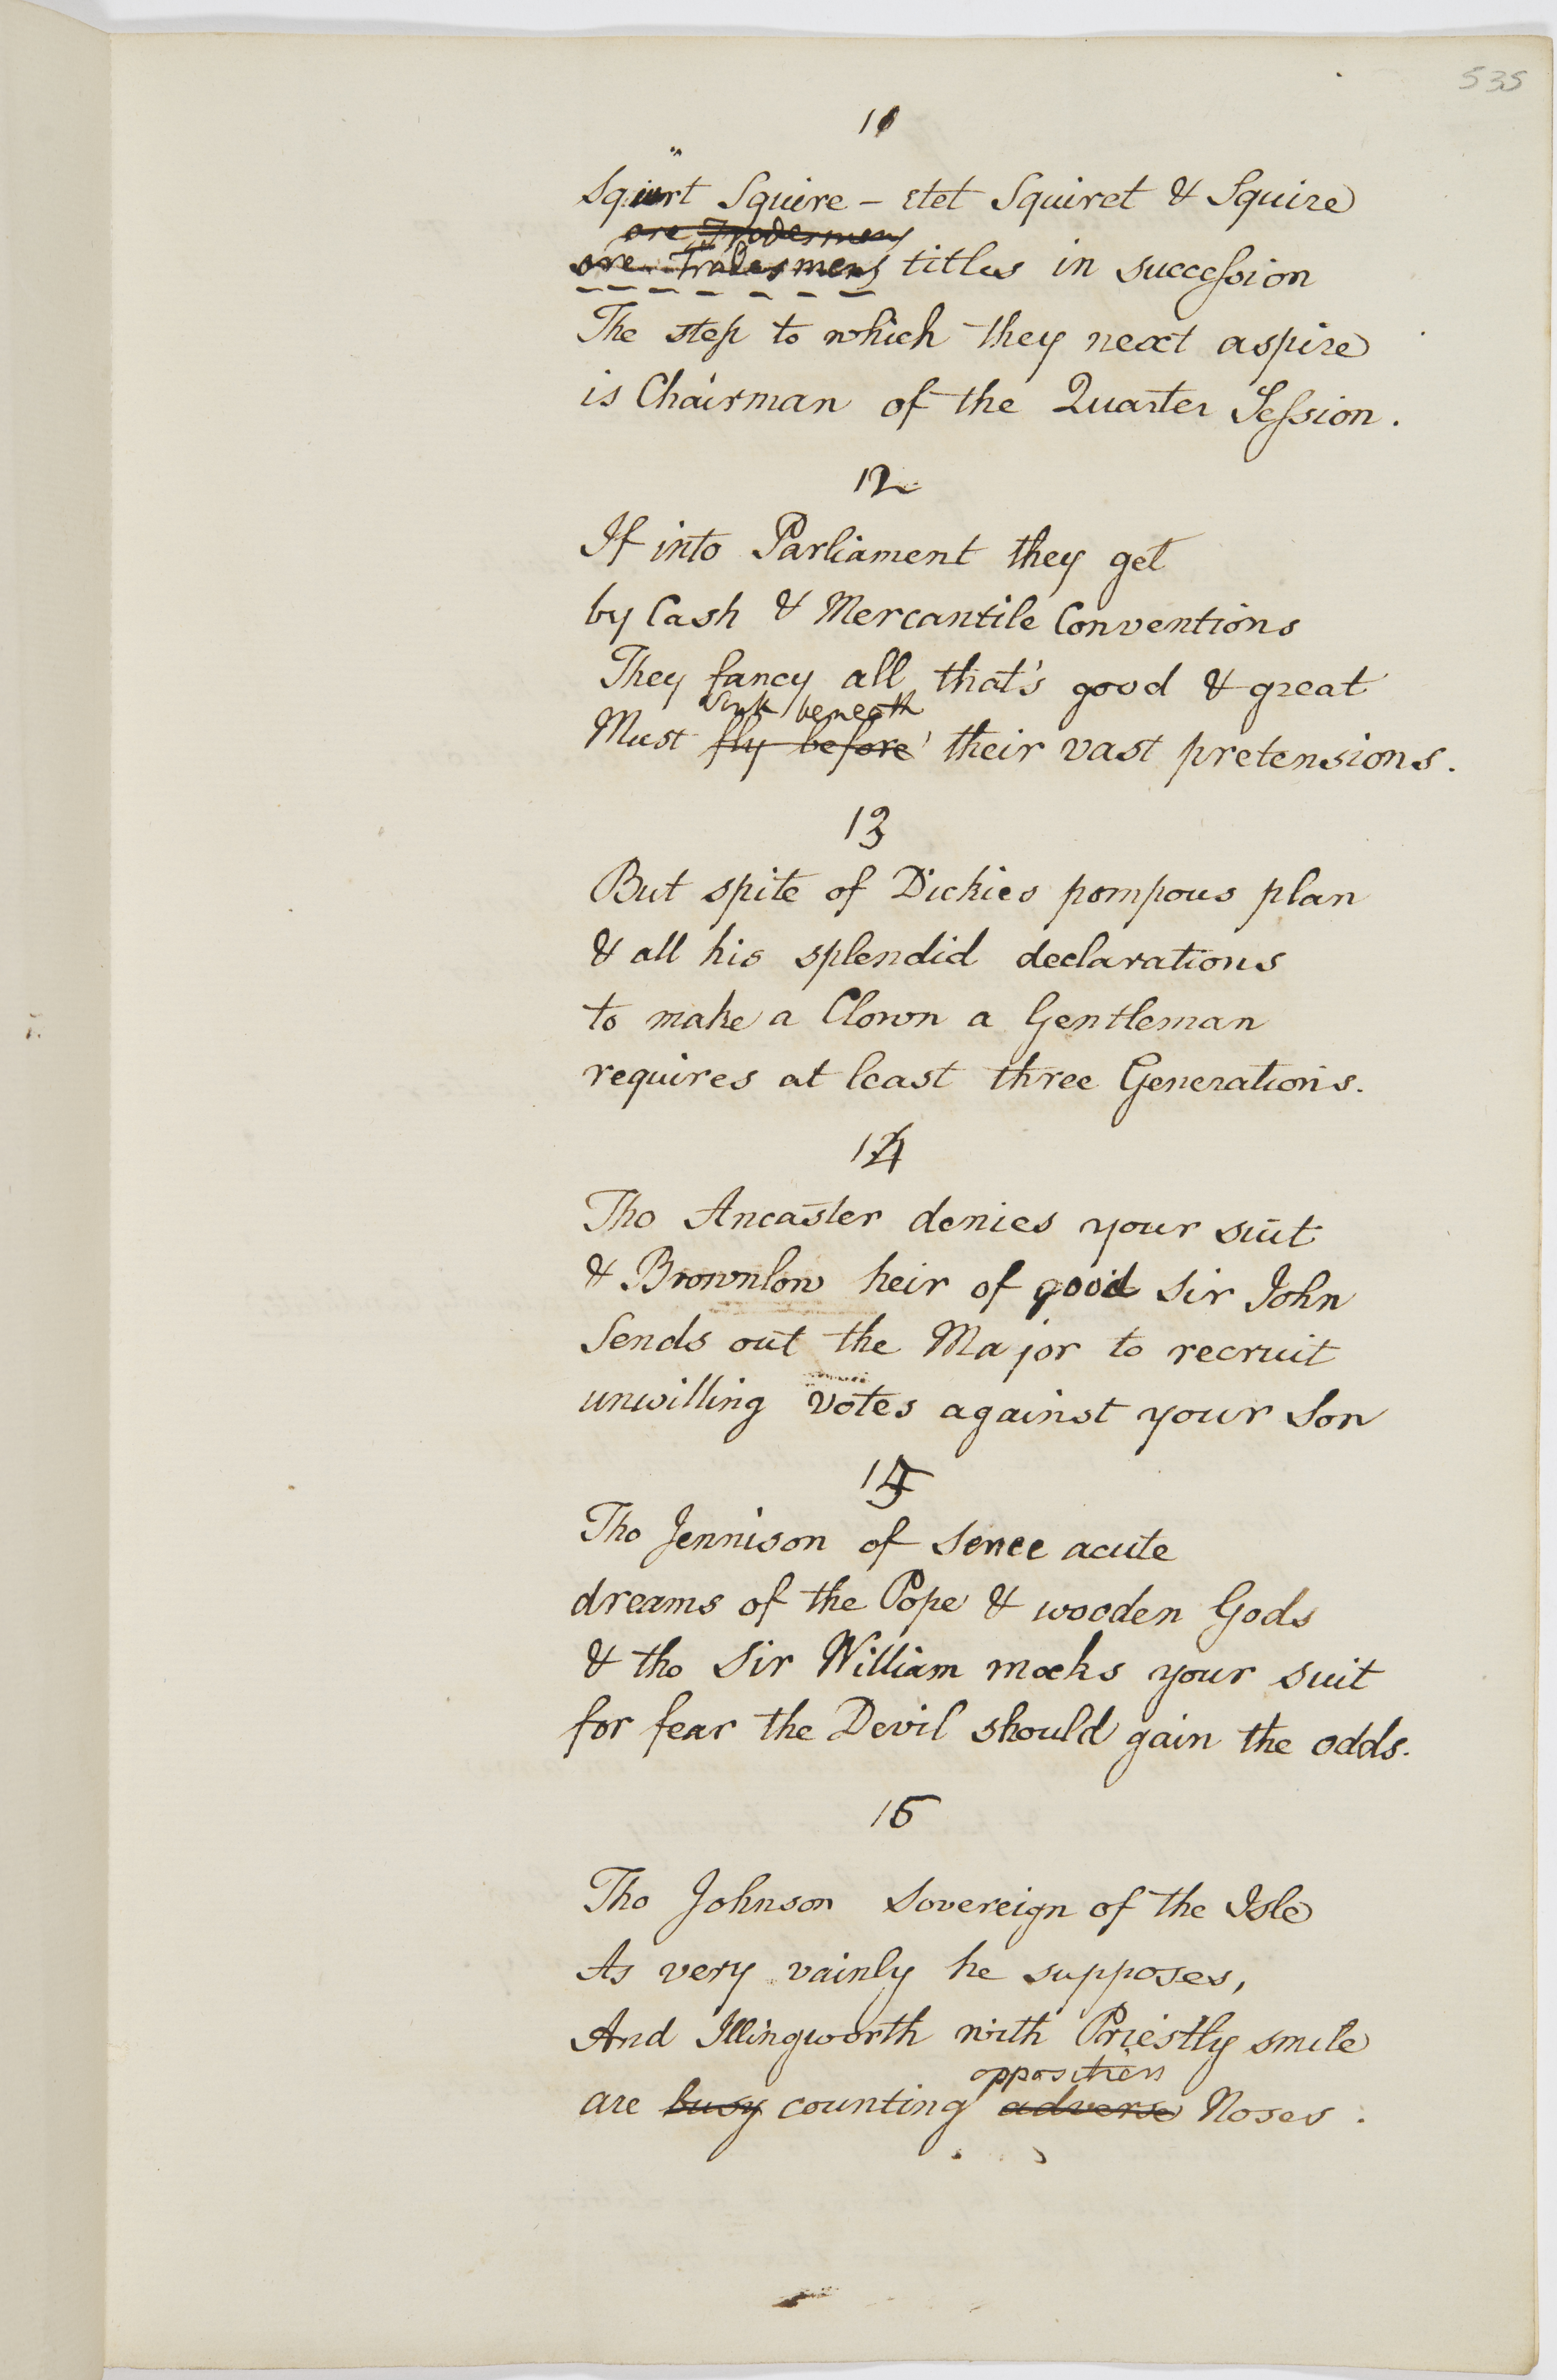 535
11
Squirt Squire - stet Squiret & Squire
are Tradesmens
are Tradesmens titles in succession
The step to which they next aspire
is Chairman of the Quarter Session.
12
If into Parliament they get
by Cash & Mercantile Conventions
They fancy all that's good & great
Sink beneath
Must fly before their vast pretensions.
13
But spite of Dickies pompous plan
& all his splendid declarations
to make a Clown a Gentleman
requires at least three Generations.
14
Tho Ancaster denies your suit
& Brownlow heir of good Sir John
Sends out the Major to recruit
unwilling votes against your Son
15
Tho Jennison of Sence acute
dreams of the Pope & wooden Gods
& tho Sir William mocks your suit
for fear the Devil should gain the odds.
16
Tho Johnson Sovereign of the Isle
As very vainly he supposes,
And Illingworth with Priestly smile
opposition
are busy counting adverse Noses.